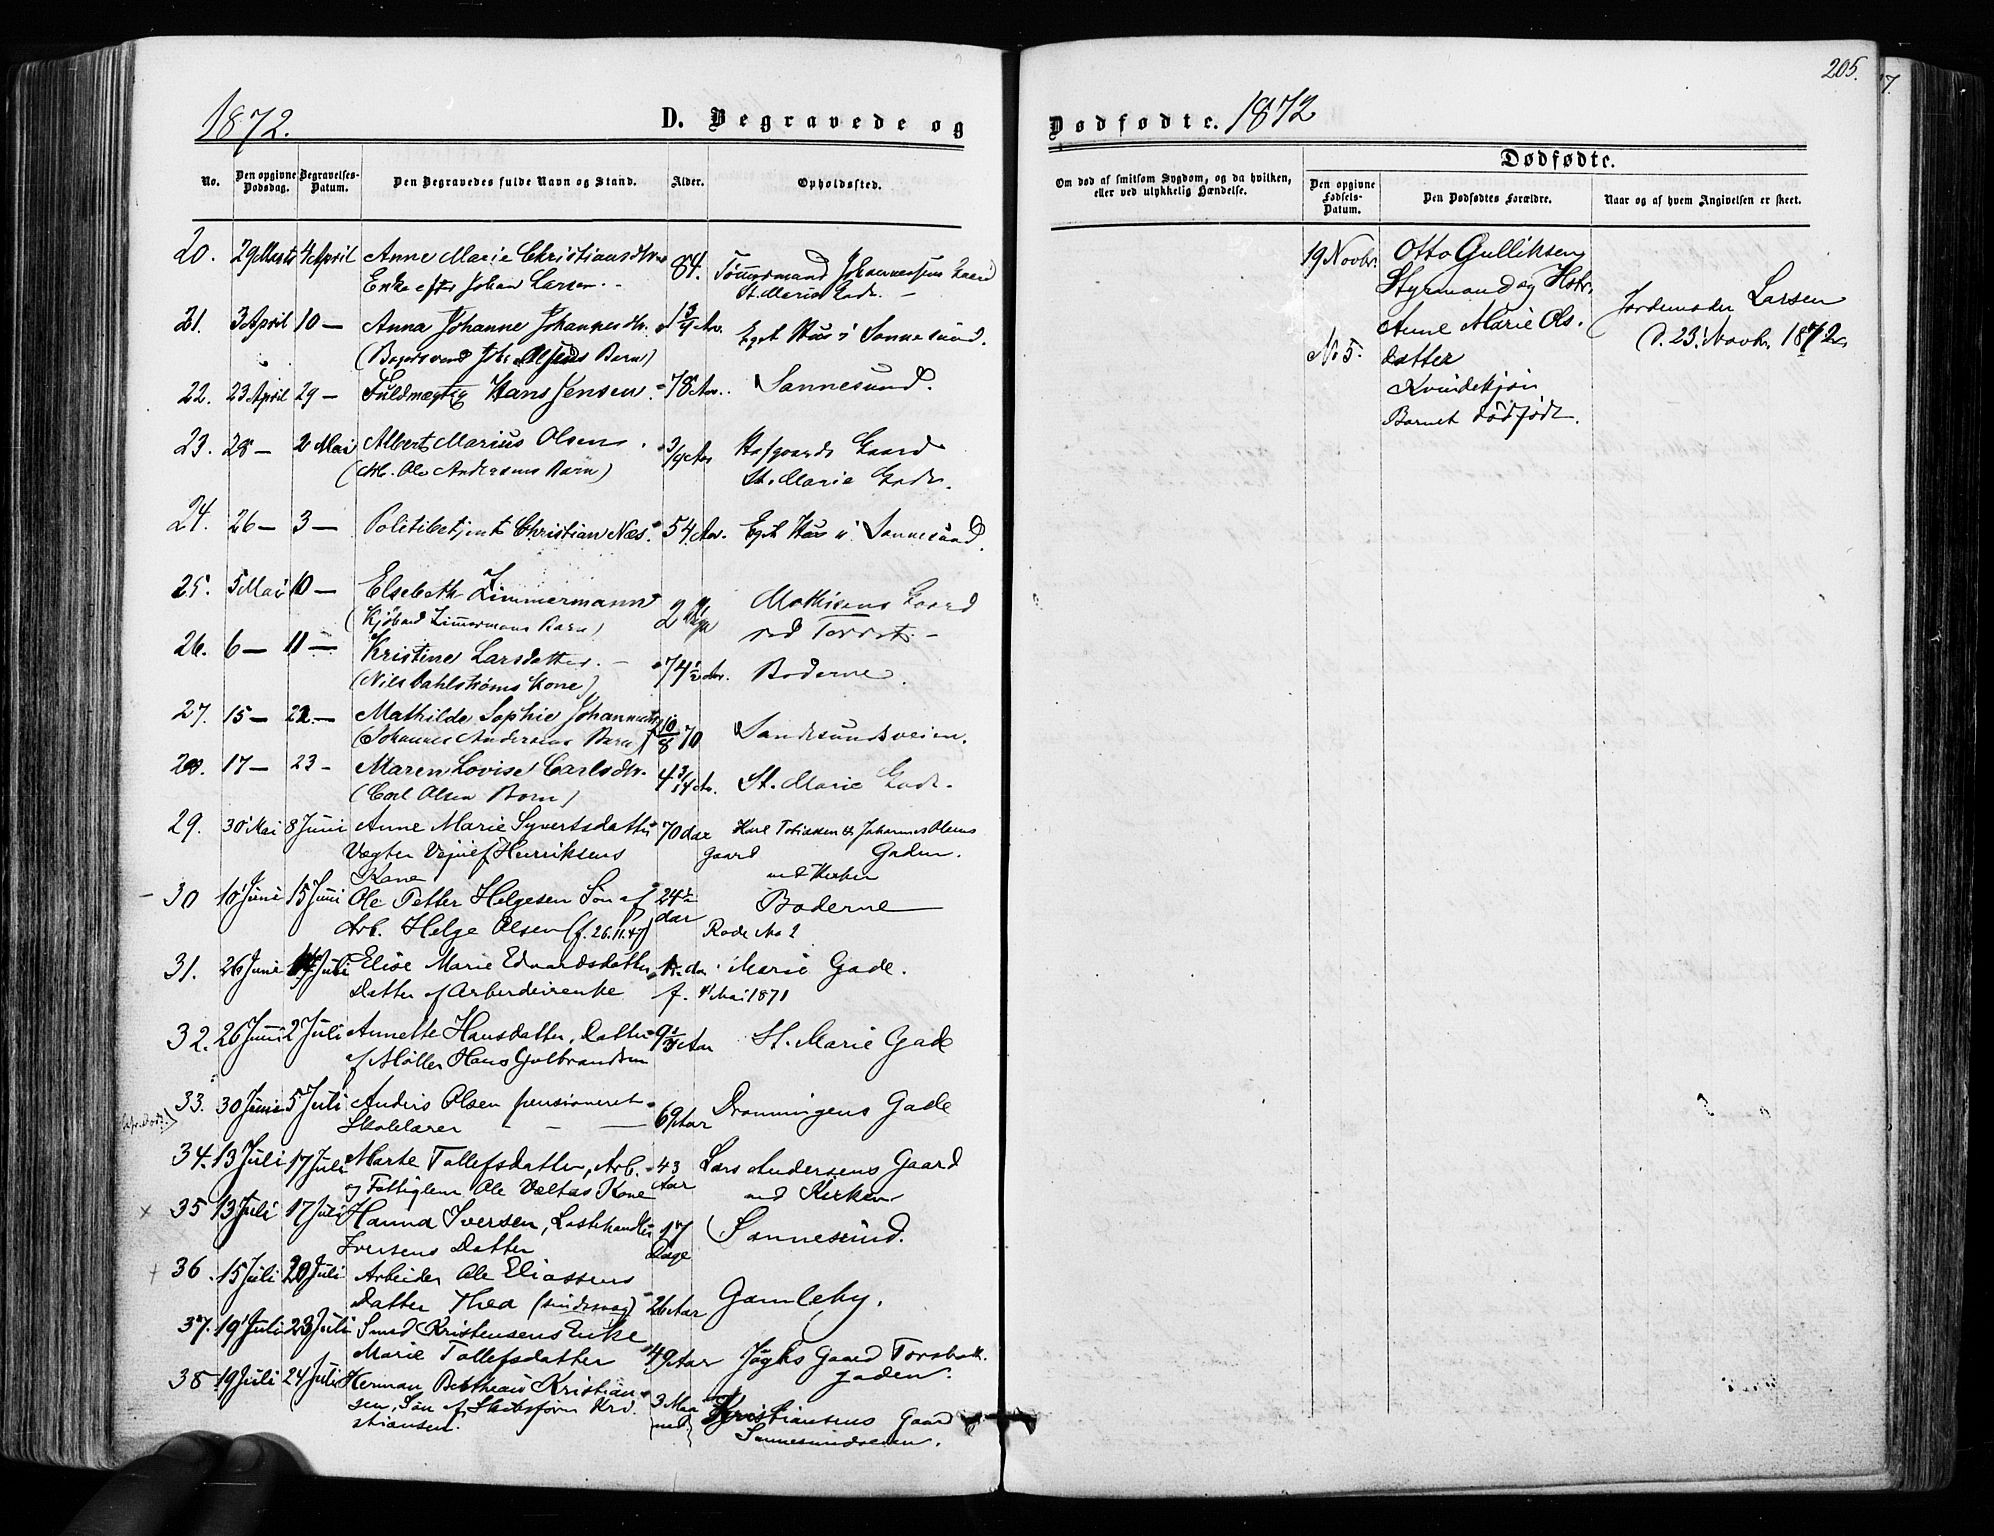 205.
1872. D. Begravede og Dødfødte. 1872
Dødfødte.
No. Den opgivne Dødsdag. Begravelses-Datum. Den Begravedes fulde Navn og Stand. Alder. Opholdssted.
Om død af smitsom Sygdom, og da hvilken, eller ved ulykkelig Hændelse. Den opgivne Fødsels-Datum. Den Dødfødtes Forældre. Naar og af hvem Angivelsen er skeet.
20. 29 Marts 4 April Anne Marie Christiansdtr. 84. Tömmermand Johannessens Gaard
Enke efter Johan Larsen. St. Marie Gade.
21. 3 April 10 — Anna Johanne Johannesdtr. 1 3/4 Aar. Eget Huus i Sannesund.
Johs Olsens Barn)
22. 23 April 29 — Fuldmægtig Hans Jensen. 78 Aar. Sannesund.
23. 28 — 2 Mai Albert Marius Olsen. 3/4 Aar Hafgaards Gaard
(Arb. Ole Andersens Barn) St. Marie Gade.
24. 26 — 3 — Politibetjent Christian Næs. 54 Aar. Eget Huus i Sannesund.
25. 5 Mai 10 — Elsebeth Zimmermann 2 Mathisens Gaard
(Kjøbmd Zimmermans Barn) ved Torvet. —
26. 6 — 11 — Kristine Larsdatter. — 74 1/2 Aar. Boderne.
(Nils Dahlstrøms Kone)
27. 15 — 22 — Mathilde Sophie Johannesdtr 10/8 70 Sandesundsveien.
(Johannes Andersens Barn)
28. 17 — 23 — Maren Lovise Carlsdtr. 4 3/4 Aar. St. Marie Gade.
(Carl Olsen Barn)
29. 30 Mai 8 Juni Anne Marie Syvertsdatter 70 Aar Karl Tobiassen & Johannes Olsens
Vægter Henriksens Gaard Gaden.
Kone ved Kirken
30 10 Juni 15 Juni Ole Petter Helgesen Søn af 24 1/2 Boderne
Arb. Helge Olsen (f. 26.11.47) Aar Rode No 2
31. 26 Juni Juli Elise Marie Edvardsdatter Marie Gade.
Datter af f. Mai 1871
32. 26 Juni 2 Juli Annette Hansdatter, Datter 9 Aar St. Marie Gade
af Møller Hans Gulbrandsen
33. 30 Junie 5 Juli Anders Olsen pensioneret 69 Aar Dronningens Gade
Skolelærer — — —
34. 13 Juli 17 Juli Marte Tollefsdatter, Arb. 43 Lars Andersens Gaard
og Fattiglem Ole Kone Aar ved Kirken
35 13 Juli 17 Juli Hanna Iversen, 17 Sannesund.
Iversens Datter Dage
36. 15 Juli 20 Juli Arbeider Ole Eliassens
Datter Thea (sindssvag) 26 Aar Gamleby.
37. 19 Juli 23 Juli Smed Kristensens Enke
Marie Tollefsdatter 49 Aar Gaard Torsbæk.
38 19 Juli 24 Juli Herman Kristian- gaden.
sen, Søn af Skibsfører Kri- 3 Maa Kristiansens Gaard
stiansen. ned Sannesundveien.
19 Novbr. Otto Gulliksen
Styrmand og Hstr.
Anne Marie Ols. Jordemoder Larsen
No 5. datter D. 23 Novbr. 1872
Kvindekjøn
Barnet dødfødt.